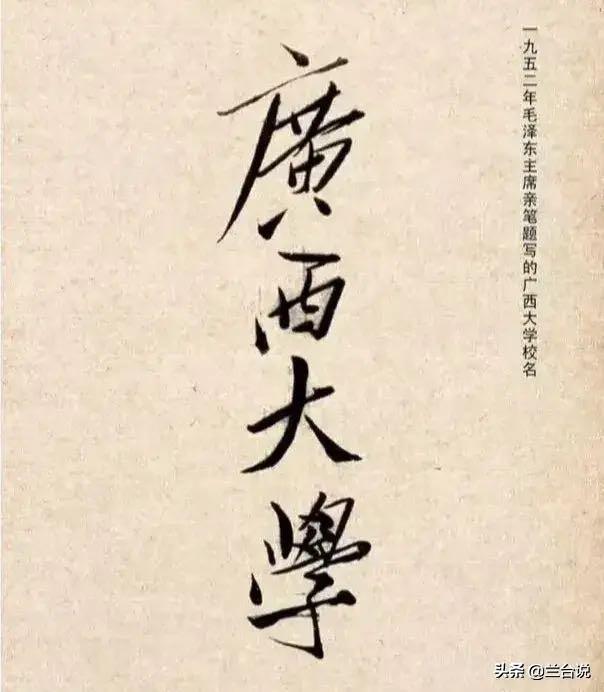 一九五二年毛泽东主席亲笔题写的广西大学校名
廣西大學
头条 @兰台说